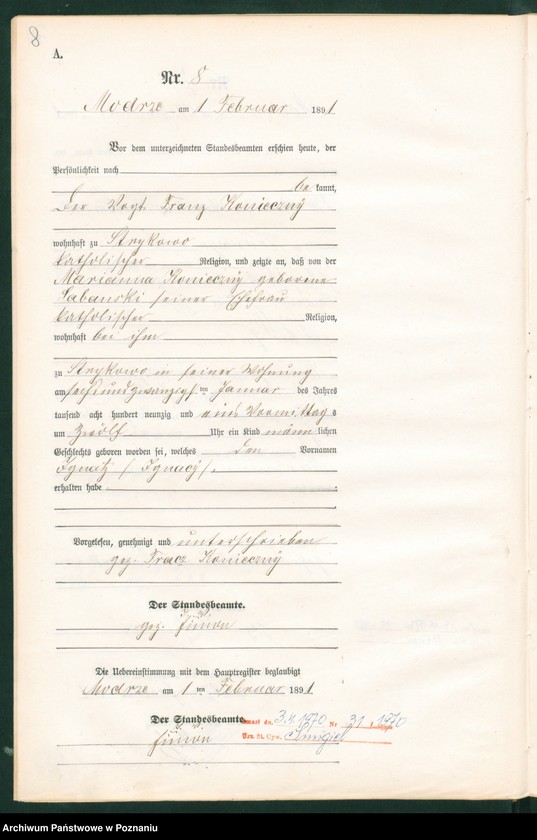 8
A.
Nr. 8
Modrze am 1 Februar 1891
Vor dem unterzeichneten Standesbeamten erschien heute, der
Persönlichkeit nach
be kannt,
Der Vogt Franz Konieczny
wohnhaft zu Strykowo
katholischer Religion, und zeigte an, daß von der
Marianna Konieczny geborene
Labanski seiner Ehefrau
katholischer Religion,
wohnhaft bei ihm
zu Strykowo in seiner Wohnung
am sechsundzwanzigsten Januar des Jahres
tausend acht hundert neunzig und eins Vormittags
um Zwölf Uhr ein Kind männlichen
Geschlechts geboren worden sei, welches den Vornamen
Ignatz (Ignacy).
erhalten habe.
Vorgelesen, genehmigt und unterschrieben
gez. Franz Konieczny
Der Standesbeamte.
gez.
Die Uebereinstimmung mit dem Hauptregister beglaubigt
Modrze am 1 ten Februar 1891
Der Standesbeamte.
3.4.1970 Nr 31 1970
Urz. St. Cyw.
Archiwum Państwowe w Poznaniu